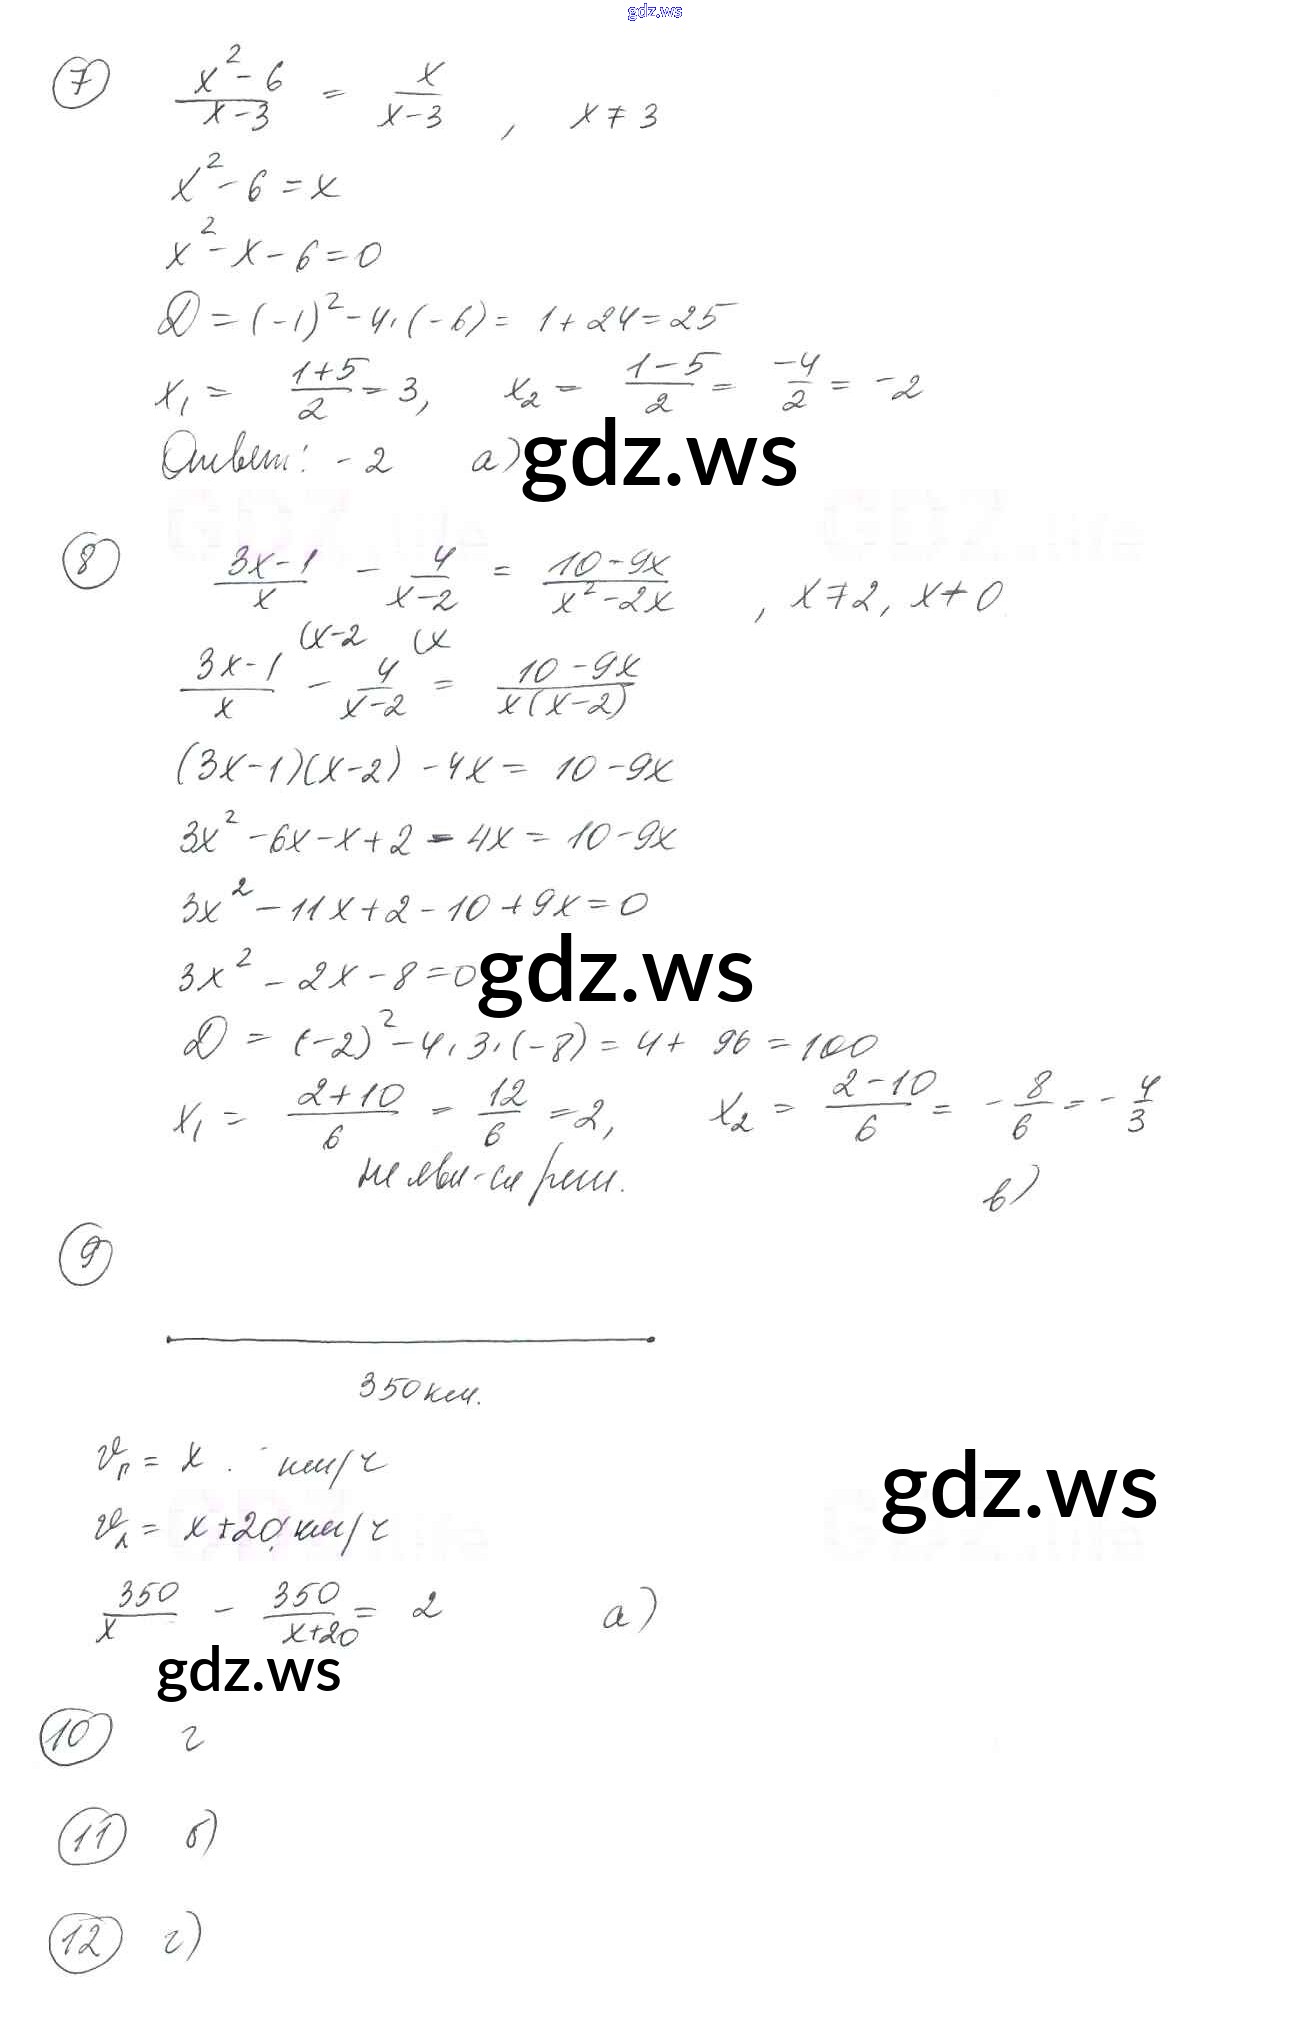 gdz.ws
7 x²-6/x-3 = x/x-3 , x≠3
x²-6=x
x²-x-6=0
D=(-1)²-4·(-6)=1+24=25
x₁= 1+5/2=3, x₂= 1-5/2= -4/2= -2
Ответ: -2 а)
gdz.ws
8 3x-1/x - 4/x-2 = 10-9x/x²-2x , x≠2, x≠0
(x-2 (x
3x-1/x - 4/x-2 = 10-9x/x(x-2)
(3x-1)(x-2)-4x=10-9x
3x²-6x-x+2-4x=10-9x
3x²-11x+2-10+9x=0
3x²-2x-8=0
gdz.ws
D=(-2)²-4·3·(-8)=4+96=100
x₁= 2+10/6 = 12/6 =2, x₂= 2-10/6= -8/6=-4/3
не явл-ся реш. в)
9
350 км.
vп=x км/ч
gdz.ws
vл=x+20 км/ч
350/x - 350/x+20= 2 а)
gdz.ws
10 г
11 б)
12 г)